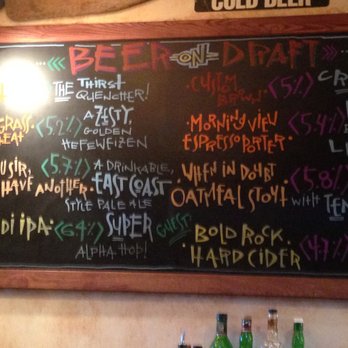 COLD BEER
BEER ON DRAFT
THE THIRST
QUENCHER!
GRASS
EAT
<5.2%>
A ZESTY
GOLDEN
HEFEWEIZEN
U SIR,
HAVE ANOTHER.
<5.7%>
A DRINKABLE,
EAST COAST
STYLE PALE ALE
DI IPA.
<64%>
SUPER
ALPHA HOP!
GUEST
CUSTOM
BROWN
<5%>
CR
MORNING VIEW
ESPRESSO PORTER
<5.4%>
L
WHEN IN DOUBT
OATMEAL STOUT
<5.8%>
WITH TEN
BOLD ROCK
HARD CIDER
<4.7%>